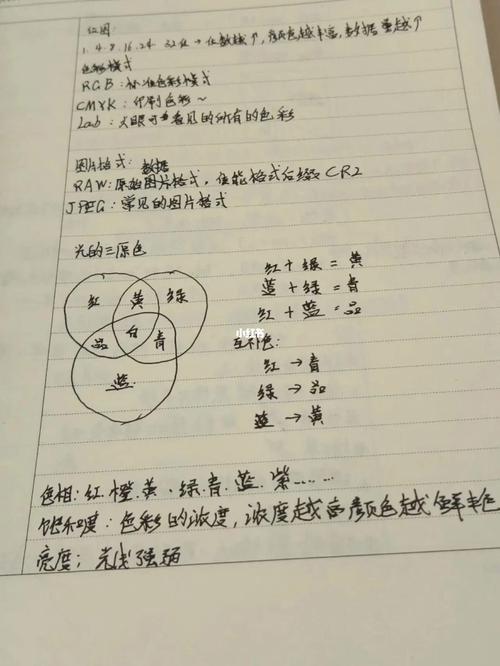 位图
1.4.8.16.24 32位→位数越↑,颜色越丰富,数据量越↑
色彩模式
RGB:标准色彩模式
CMYK:印刷色彩~
Lab:人眼可看见的所有的色彩
图片格式:数据
RAW:原始图片格式,佳能格式后缀CR2
JPEG:常见的图片格式
光的三原色
红 黄 绿
品 白 青
蓝
红+绿=黄
蓝+绿=青
红+蓝=品
互补色:
红→青
绿→品
蓝→黄
小红书
色相:红.橙.黄.绿.青.蓝.紫......
饱和度:色彩的浓度,浓度越高颜色越鲜艳
亮度:光线强弱